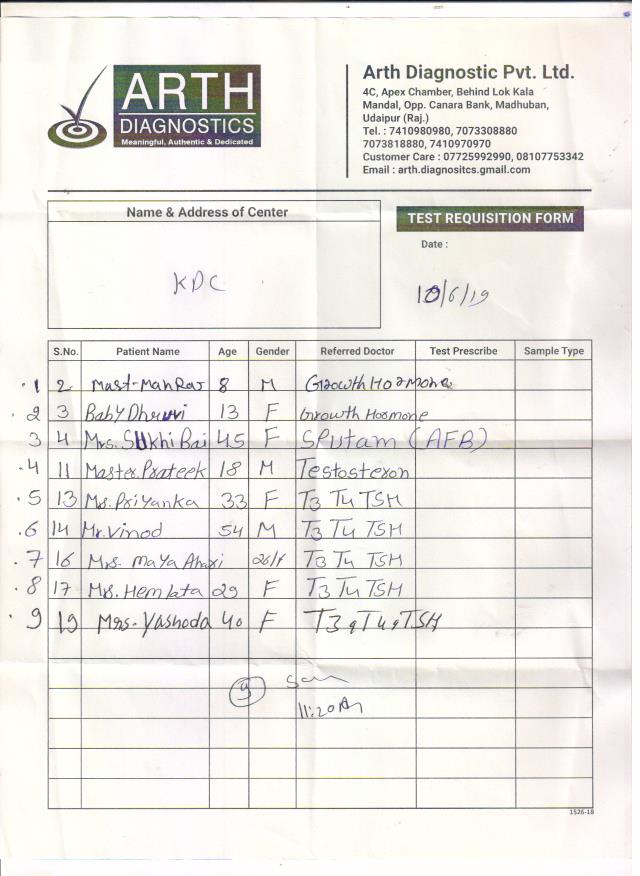 ARTH
DIAGNOSTICS
Meaningful, Authentic & Dedicated
Arth Diagnostic Pvt. Ltd.
4C, Apex Chamber, Behind Lok Kala
Mandal, Opp. Canara Bank, Madhuban,
Udaipur (Raj.)
Tel. : 7410980980, 7073308880
7073818880, 7410970970
Customer Care : 07725992990, 08107753342
Email : arth.diagnositcs.gmail.com
Name & Address of Center
KDC
TEST REQUISITION FORM
Date :
10/6/19
S.No. Patient Name Age Gender Referred Doctor Test Prescribe Sample Type
1 2 Mast-ManRaj 8 M Growth Hormone
2 3 Baby Dhruvi 13 F Growth Hormone
3 4 Mrs. Sukhi Bai 45 F SPutam (AFB)
4 11 Master. Prateek 18 M Testosteron
5 13 Ms. Priyanka 33 F T3 T4 TSH
6 14 Mr. Vinod 54 M T3 T4 TSH
7 16 Mrs. Maya Ahari 26/F T3 T4 TSH
8 17 Ms. Hemlata 29 F T3 T4 TSH
9 19 Mrs. Yashoda 40 F T3, T4, TSH
9
11:20 Am
1526-18